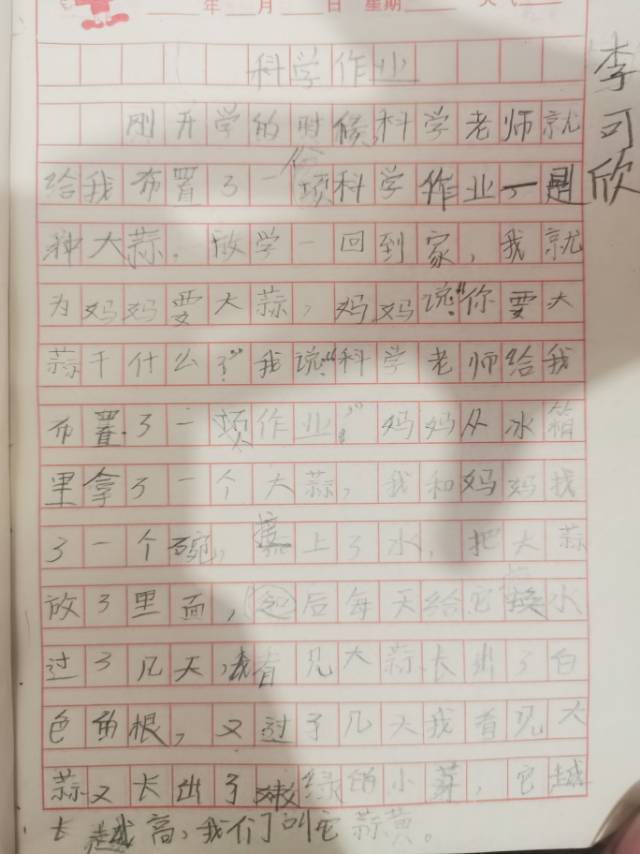 年 月 日 星期 天气
科学作业
李可欣
刚开学的时候,科学老师就
给我布置了一份项科学作业,是
种大蒜。放学一回到家,我就
为妈妈要大蒜,妈妈说:“你要大
蒜干什么?”我说:“科学老师给我
布置了一项作业。”妈妈从冰箱
里拿了一个大蒜,我和妈妈找
了一个碗,接上了水,把大蒜
放了里面,之后每天给它换水
过了几天,我看见大蒜长出了白
色的根,又过了几天我看见大
蒜又长出了嫩绿的小芽,它越
长越高,我们叫它蒜黄。